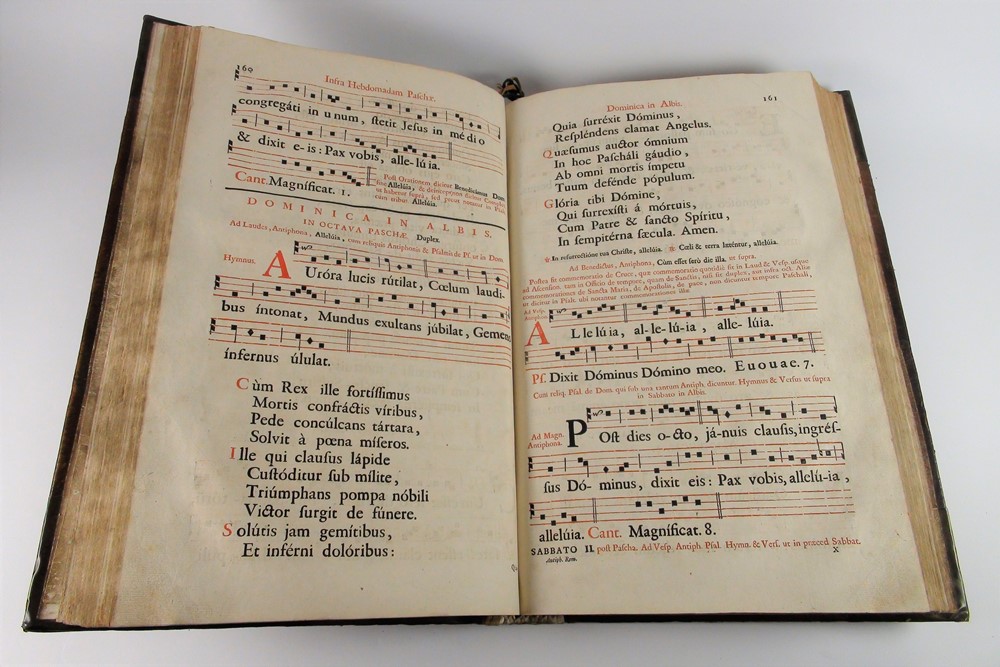 160
Infra Hebdomadam Paschæ.
congregáti in unum, stetit Jesus in médio
& dixit e-is: Pax vobis, alle-lúia.
Cant. Magníficat. 1.
Post Orationem dicitur Benedicámus Dom
Allelúia, &
Allelúia.
DOMINICA IN ALBIS,
IN OCTAVA PASCHÆ. Duplex.
Ad Laudes, Antiphona, Allelúia, cum reliquis Antiphonis & Psalmis de Ps. ut in Dom.
Hymnus. AUróra lucis rútilat, Cœlum laudi-
bus íntonat, Mundus exultans júbilat, Gemens
ínfernus úlulat.
Cùm Rex ille fortíssimus
Mortis confráctis víribus,
Pede concúlcans tártara,
Solvit à pœna míseros.
Ille qui clausus lápide
Custóditur sub mílite,
Triúmphans pompa nóbili
Victor surgit de fúnere.
Solútis jam gemítibus,
Et inférni dolóribus:
161
Dominica in Albis.
Quia surréxit Dóminus,
Respléndens clamat Angelus.
Quæsumus auctor ómnium
In hoc Pascháli gáudio,
Ab omni mortis ímpetu
Tuum defénde pópulum.
Glória tibi Dómine,
Qui surrexísti á mórtuis,
Cum Patre & sancto Spíritu,
In sempitérna sæcula. Amen.
℣ In resurrectióne tua Christe, allelúia. ℟ Cœli & terra læténtur, allelúia.
Ad Benedictus, Antiphona, Cùm esset serò die illa. ut supra.
Postea fit commemoratio de Cruce, quæ commemoratio quotidiè fit in Laud & Vesp. usque
ad Ascension. tam in Officio de tempore, quam de Sanctis, nisi sit duplex, aut infra oct. Aliæ
commemorationes de Sancta Maria, de Apostolis, de pace, non dicuntur tempore Paschali,
ut dicitur in Psalt. ubi notantur commemorationes illæ.
Ad Vesp.
Antiphona.
ALlelúia, al-le-lú-ia, alle-lúia.
Ps. Dixit Dóminus Dómino meo. Euouae. 7.
Cum reliq. Psal. de Dom. qui sub una tantum Antiph. dicuntur. Hymnus & Versus ut supra
in Sabbato in Albis.
Ad Magn.
Antiphona.
POst dies o-cto, já-nuis clausis, ingrés-
sus Dó-minus, dixit eis: Pax vobis, allelú-ia,
allelúia. Cant. Magníficat. 8.
SABBATO II. post Pascha. Ad Vesp. Antiph. Psal. Hymn. & Vers. ut in præced Sabbat.
Antiph. Rom.
X